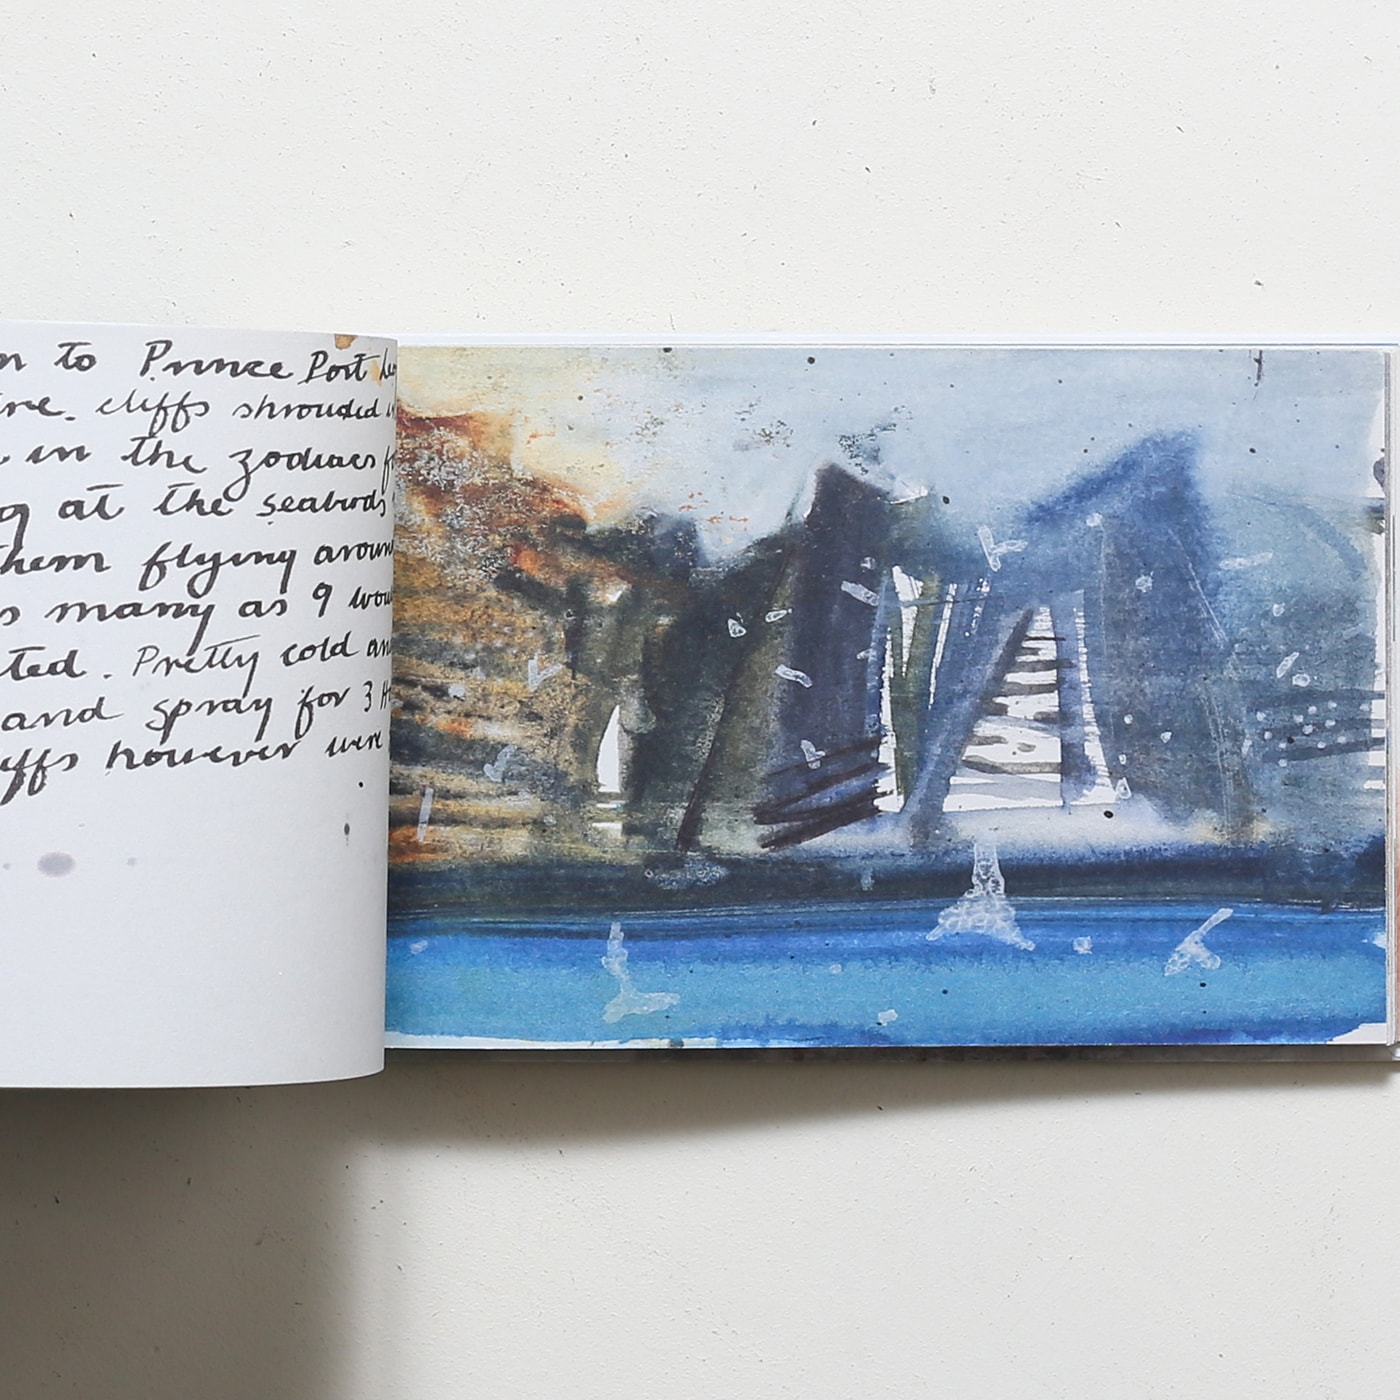 n to Prince Port Le
ire. cliffs shrouded i
in the zodiacs f
g at the seabirds
hem flying aroun
s many as 9 wou
ted. Pretty cold an
and spray for 3 H
iffs however were